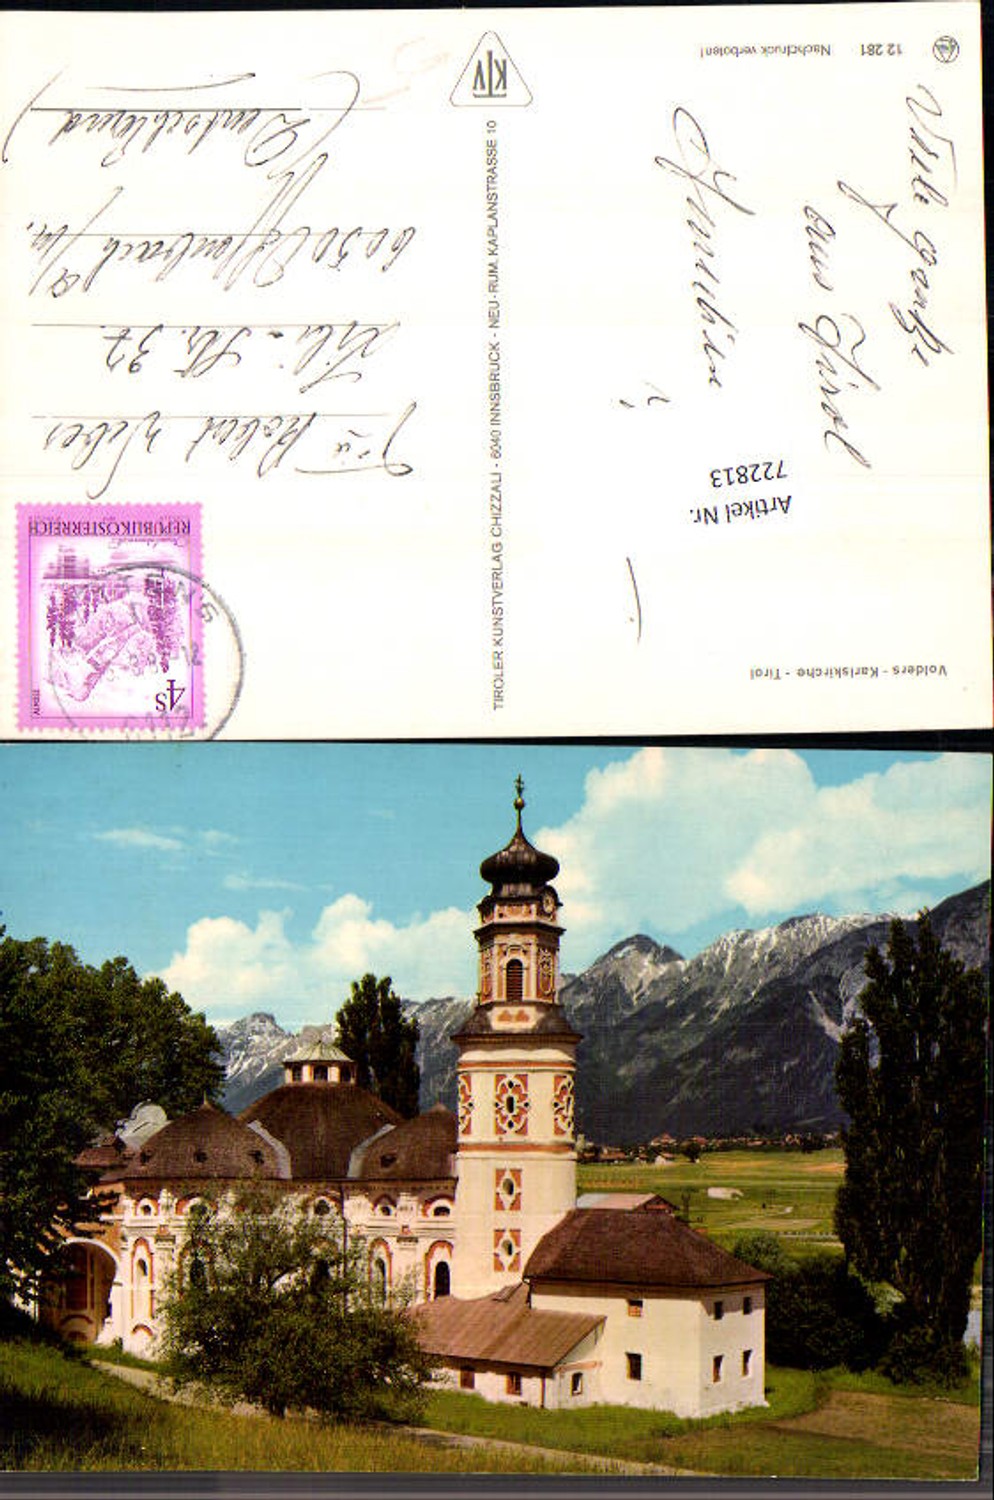 Volders - Karlskirche - Tirol
Artikel Nr.
722813
Viele Grüße
aus Tirol
TIROLER KUNSTVERLAG CHIZZALI - 6040 INNSBRUCK - NEU-RUM, KAPLANSTRASSE 10
KTV
12 281 Nachdruck verboten!
REPUBLIK ÖSTERREICH
4S
Robert Weber
Str. 37
6050 Offenbach / M.
(Deutschland)